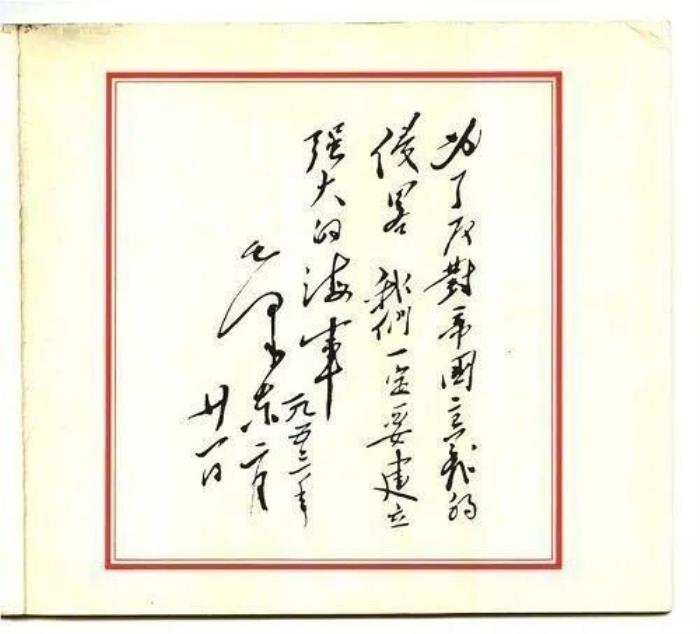 为了反對帝國主義的
侵畧 我們一定要建立
强大的海軍
一九五三年
毛澤東 二月
廿一日